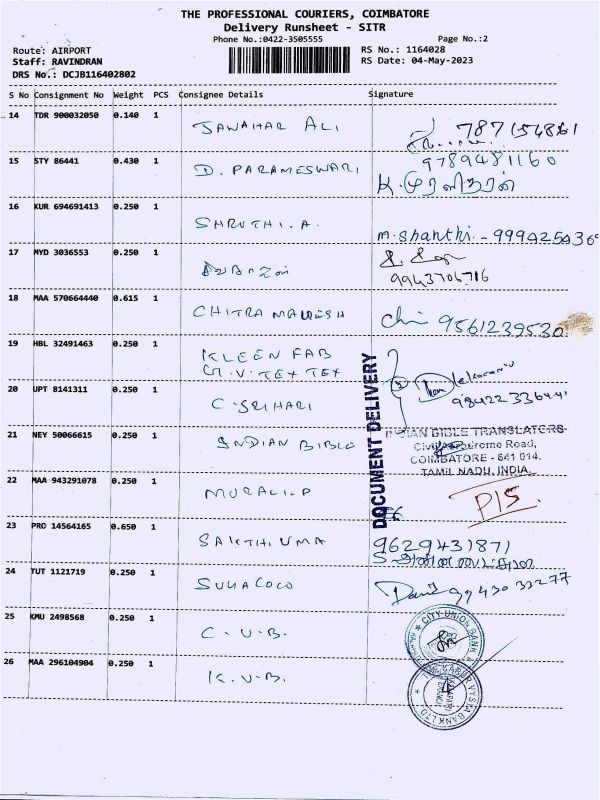 THE PROFESSIONAL COURIERS, COIMBATORE
Delivery Runsheet - SITR
Phone No.:0422-3505555 Page No.:2
Route: AIRPORT RS No.: 1164028
Staff: RAVINDRAN RS Date: 04-May-2023
DRS No.: DCJB116402802
S No Consignment No Weight PCS Consignee Details Signature
14 TDR 900032050 0.140 1 JAWAHAR ALI
15 STY 86441 0.430 1 D. PARAMESWARI 9789481160
க.முரளிதரன்
16 KUR 694691413 0.250 1 SHRUTHI.A. M.Shanthi.-
17 MYD 3036553 0.250 1
9943706716
18 MAA 570664440 0.615 1 CHITRA MAHESH 9561239530
19 HBL 32491463 0.250 1 KLEEN FAB
TEX TEX
20 UPT 8141311 0.250 1 C.SRIHARI
DOCUMENT DELIVERY
21 NEY 50066615 0.250 1 INDIAN BIBLE
INDIAN BIBLE TRANSLATERS
Civil Aerodrome Road,
COIMBATORE - 641 014.
TAMIL NADU, INDIA.
22 MAA 943291078 0.250 1 MURALI.P P/S.
23 PRO 14564165 0.650 1 SAKTHI UMA 9629431871
24 TUT 1121719 0.250 1 SUMALOCO
25 KMU 2498568 0.250 1 C.U.B. CITY UNION BANK
26 MAA 296104904 0.250 1 K.V.B. KARUR VYSYA BANK LTD